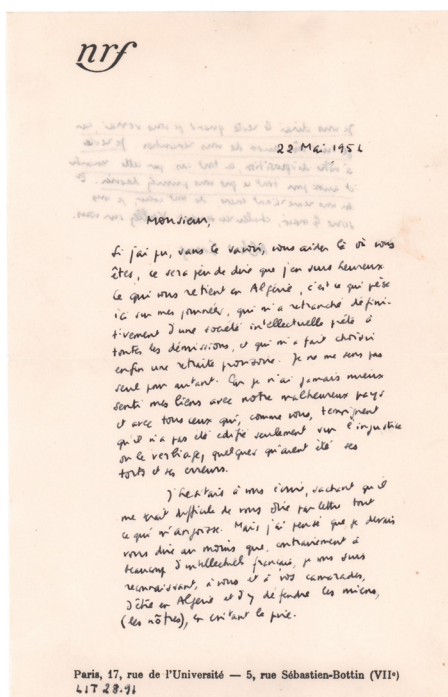 nrf
22 Mai 1956
Monsieur,
Si j'ai pu, sans le savoir, vous aider là où vous
êtes, ce sera peu de dire que j'en suis heureux.
Ce qui vous retient en Algérie, c'est ce qui pèse
ici sur mes journées, qui m'a retranché défini-
tivement d'une société intellectuelle prête à
toutes les démissions, et qui m'a fait choisir
enfin une retraite provisoire. Je ne me sens pas
seul pour autant. Car je n'ai jamais mieux
senti mes liens avec notre malheureux pays
et avec tous ceux qui, comme vous, témoignent
qu'il n'a pas été édifié seulement sur l'injustice
ou le verbiage, quelques qu'aient été ses
torts et ses erreurs.
J'hésitais à vous écrire, sachant qu'il
me serait difficile de vous dire par lettre tout
ce qui m'angoisse. Mais j'ai pensé que je devais
vous dire au moins que, contrairement à
beaucoup d'intellectuels français, je vous suis
reconnaissant, à vous et à vos camarades,
d'être en Algérie et d'y défendre les miens,
(les nôtres), en évitant le pire.
Paris, 17, rue de l'Université — 5, rue Sébastien-Bottin (VIIe)
LIT 28.91